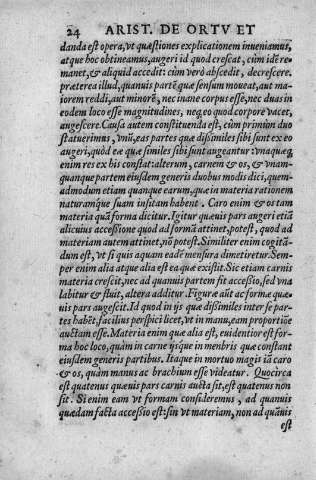 24 ARIST. DE ORTV ET
danda est opera, vt quæstiones explicationem inueniamus,
atque hoc obtineamus, augeri id quod crescat, cùm idē re-
manet, & aliquid accedit: cùm verò abscedit, decrescere.
præterea illud, quamuis partē quæ sensum moueat, aut ma-
iorem reddi, aut minorē, nec inane corpus esse, nec duas in
eodem loco esse magnitudines, neq; eo quod corpore vacet,
augescere. Causa autem constituenda est, cùm primùm duo
statuerimus, vnū, eas partes quæ dissimiles sibi sunt ex eo
augeri, quòd eæ quæ similes sibi sunt augeantur: vnaquæq;
enim res ex his constat: alterum, carnem & os, & vnam-
quanque partem eiusdem generis duobus modis dici, quem-
admodum etiam quanque earum, quæ in materia rationem
naturamque suam insitam habent. Caro enim & os tam
materia quā forma dicitur. Igitur quæuis pars augeri etiā
alicuius accessione quod ad formā attinet, potest, quod ad
materiam autem attinet, nō potest. Similiter enim cogitā-
dum est, vt si quis aquam eadē mensura dimetiretur. Sem-
per enim alia atque alia est ea quæ existit. Sic etiam carnis
materia crescit, nec ad quamuis partem fit accessio, sed vna
labitur & fluit, altera additur. Figuræ aūt ac formæ quæ-
uis pars augescit. Id quod in ijs quæ dissimiles inter se par-
tes habēt, facilius perspici licet, vt in manu, eam proportiōe
auctam esse. Materia enim quæ alia est, euidentior est for-
ma hoc loco, quàm in carne ijsque in menbris quæ constant
eiusdem generis partibus. Itaque in mortuo magis iā caro
& os, quàm manus ac brachium esse videatur. Quocirca
est quatenus quæuis pars carnis aucta sit, est quatenus non
sit. Si enim eam vt formam consideremus, ad quamuis
quædam facta accessio est: sin vt materiam, non ad quāuis
est